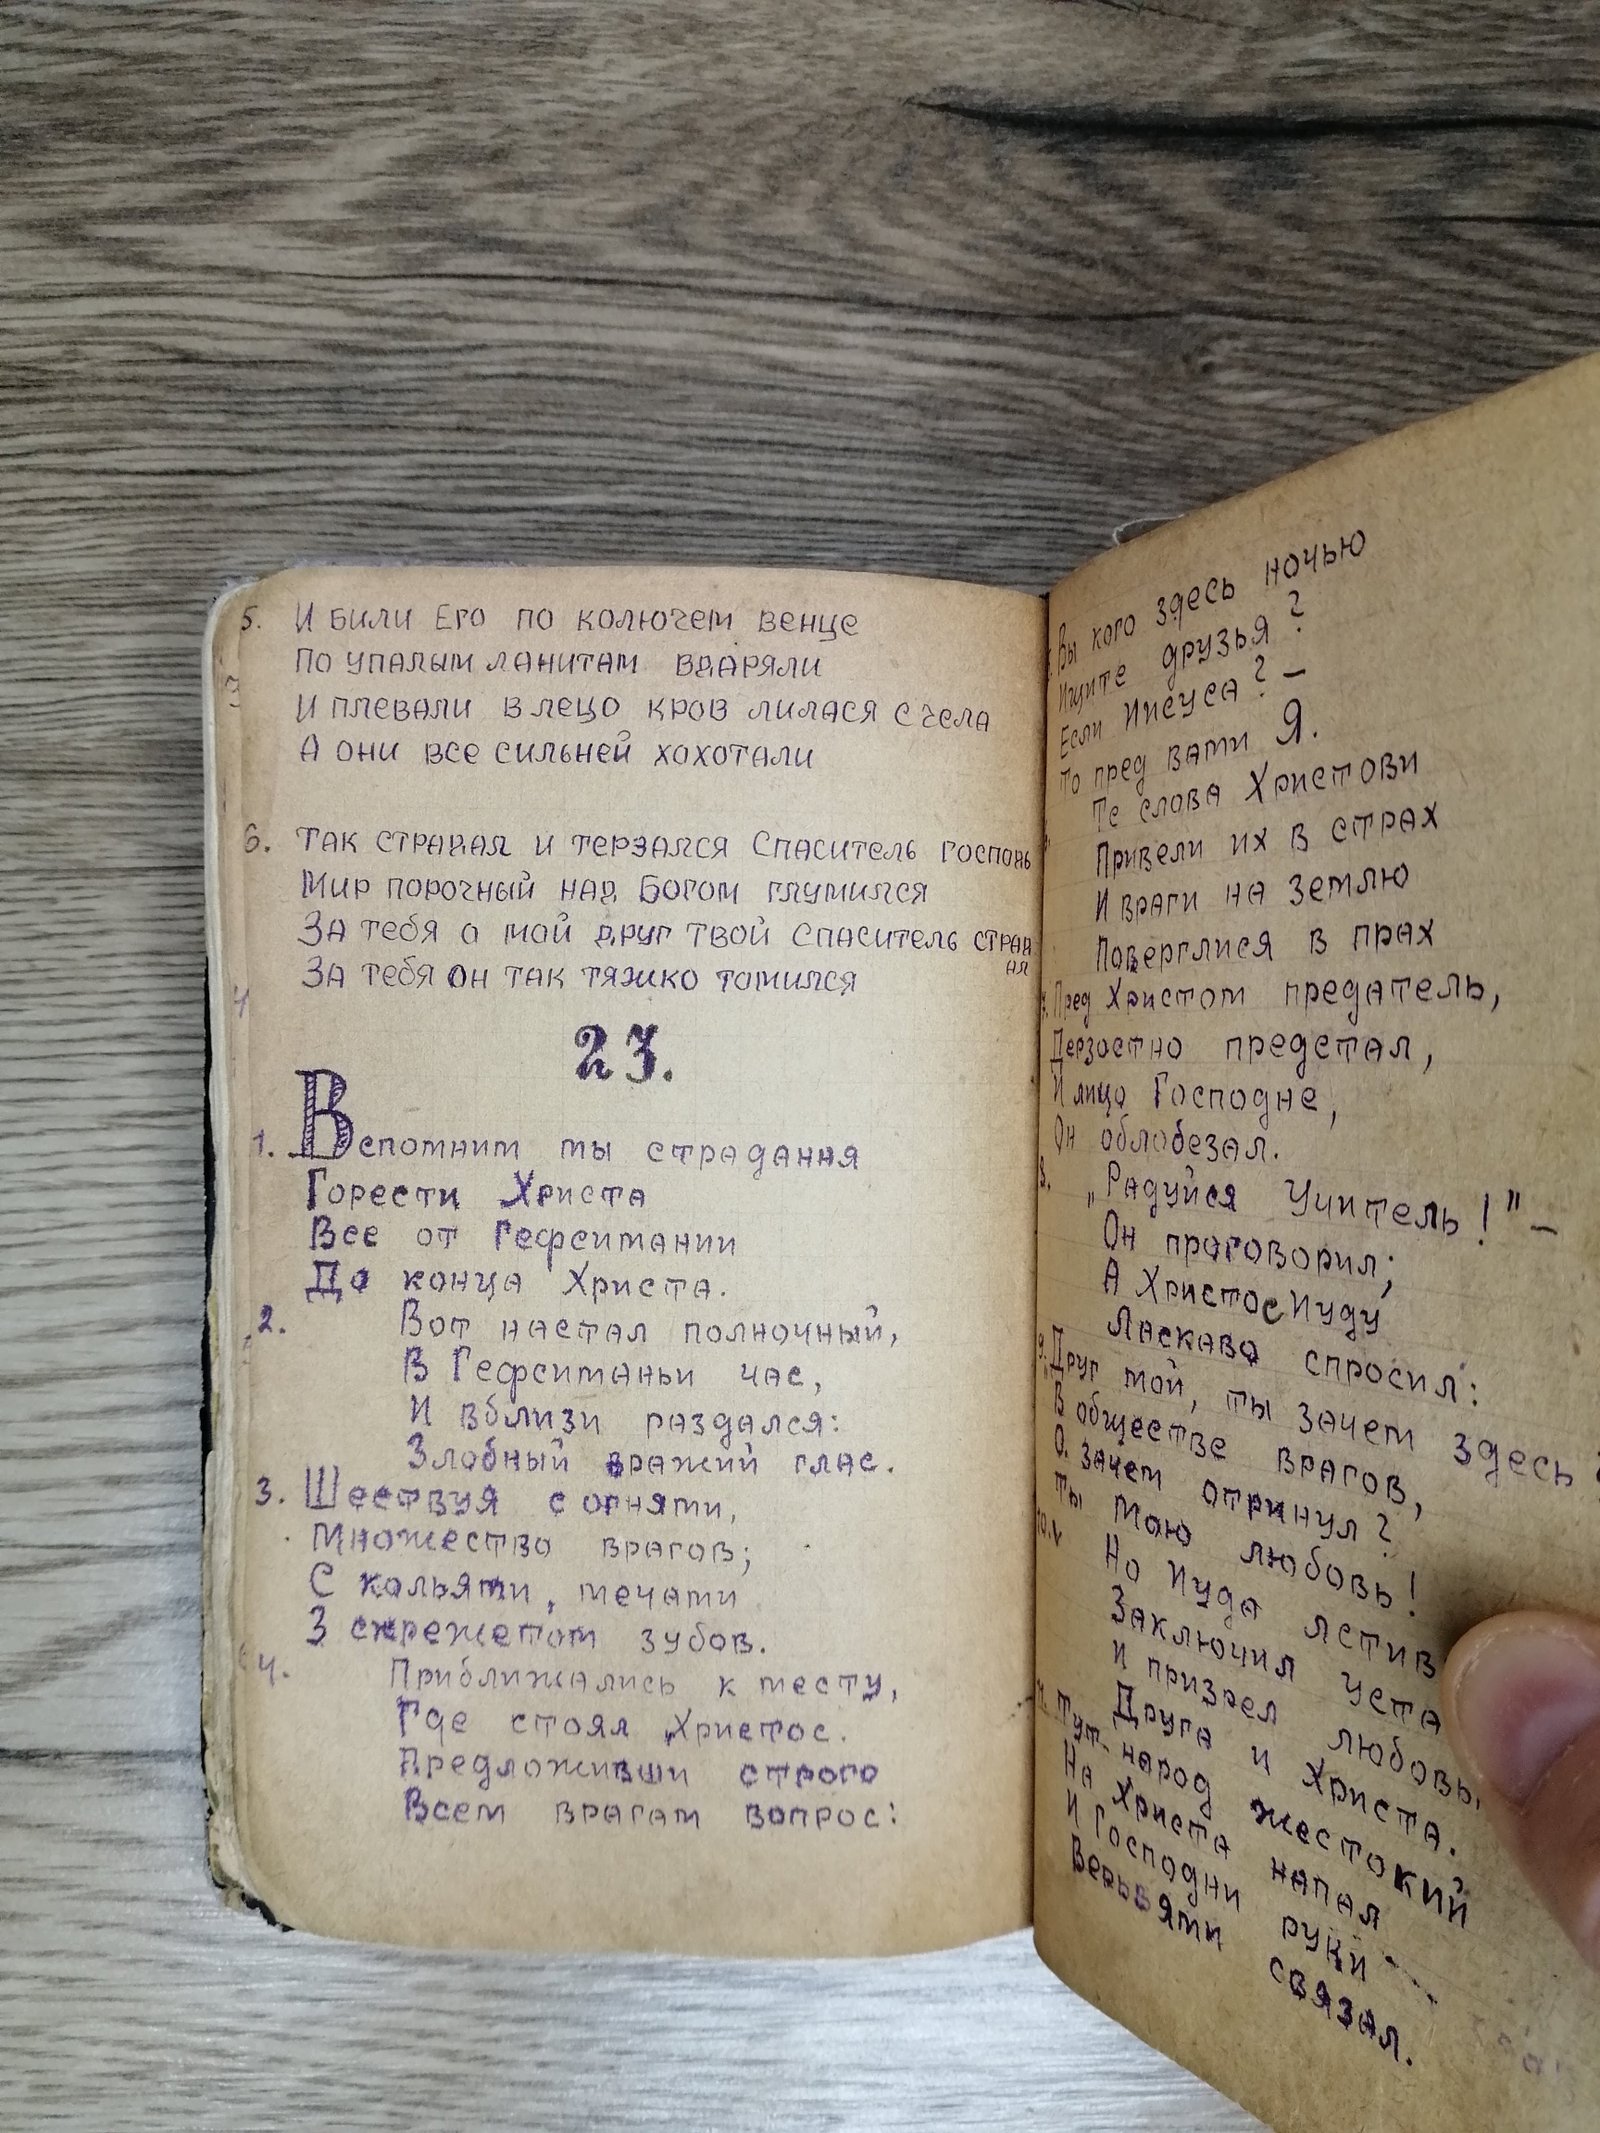 5. И били Его по колючем венце
По упалым ланитам вдаряли
И плевали в лецо кров лилася с чела
А они все сильней хохотали
6. Так страдал и терзался Спаситель Господь
Мир порочный над Богом глумился
За тебя о мой друг твой Спаситель страд
ал
За тебя он так тяжко томился
23.
1. Вспомним мы страдания
Горести Христа
Все от Гефситании
До конца Христа.
2. Вот настал полночный,
В Гефситаньи час,
И вблизи раздался:
Злобный вражий глас.
3. Шествуя с огнями,
Множество врагов;
С кольями, мечами
З скрежетом зубов.
4. Приближались к месту,
Где стоял Христос.
Предложивши строго
Всем врагам вопрос:
Вы кого здесь ночью
Ищите друзья?
Если Ииcуса? –
То пред вами Я.
Те слова Христови
Привели их в страх
И враги на землю
Поверглися в прах
7. Пред Христом предатель,
Дерзостно предстал,
И лицо Господне,
Он облобезал.
8. „Радуйся Учитель!" –
Он проговорил;
А Христос Иуду
Ласкаво спросил:
9. Друг мой, ты зачем здесь?
В обществе врагов,
О. зачем отринул?
Ты мою любовь!
10. Но Иуда лстив
Заключил уста
И призрел любовь,
Друга и Христа.
11. Тут народ жестокий
На Христа напал
И Господни руки
Веръвями связал.